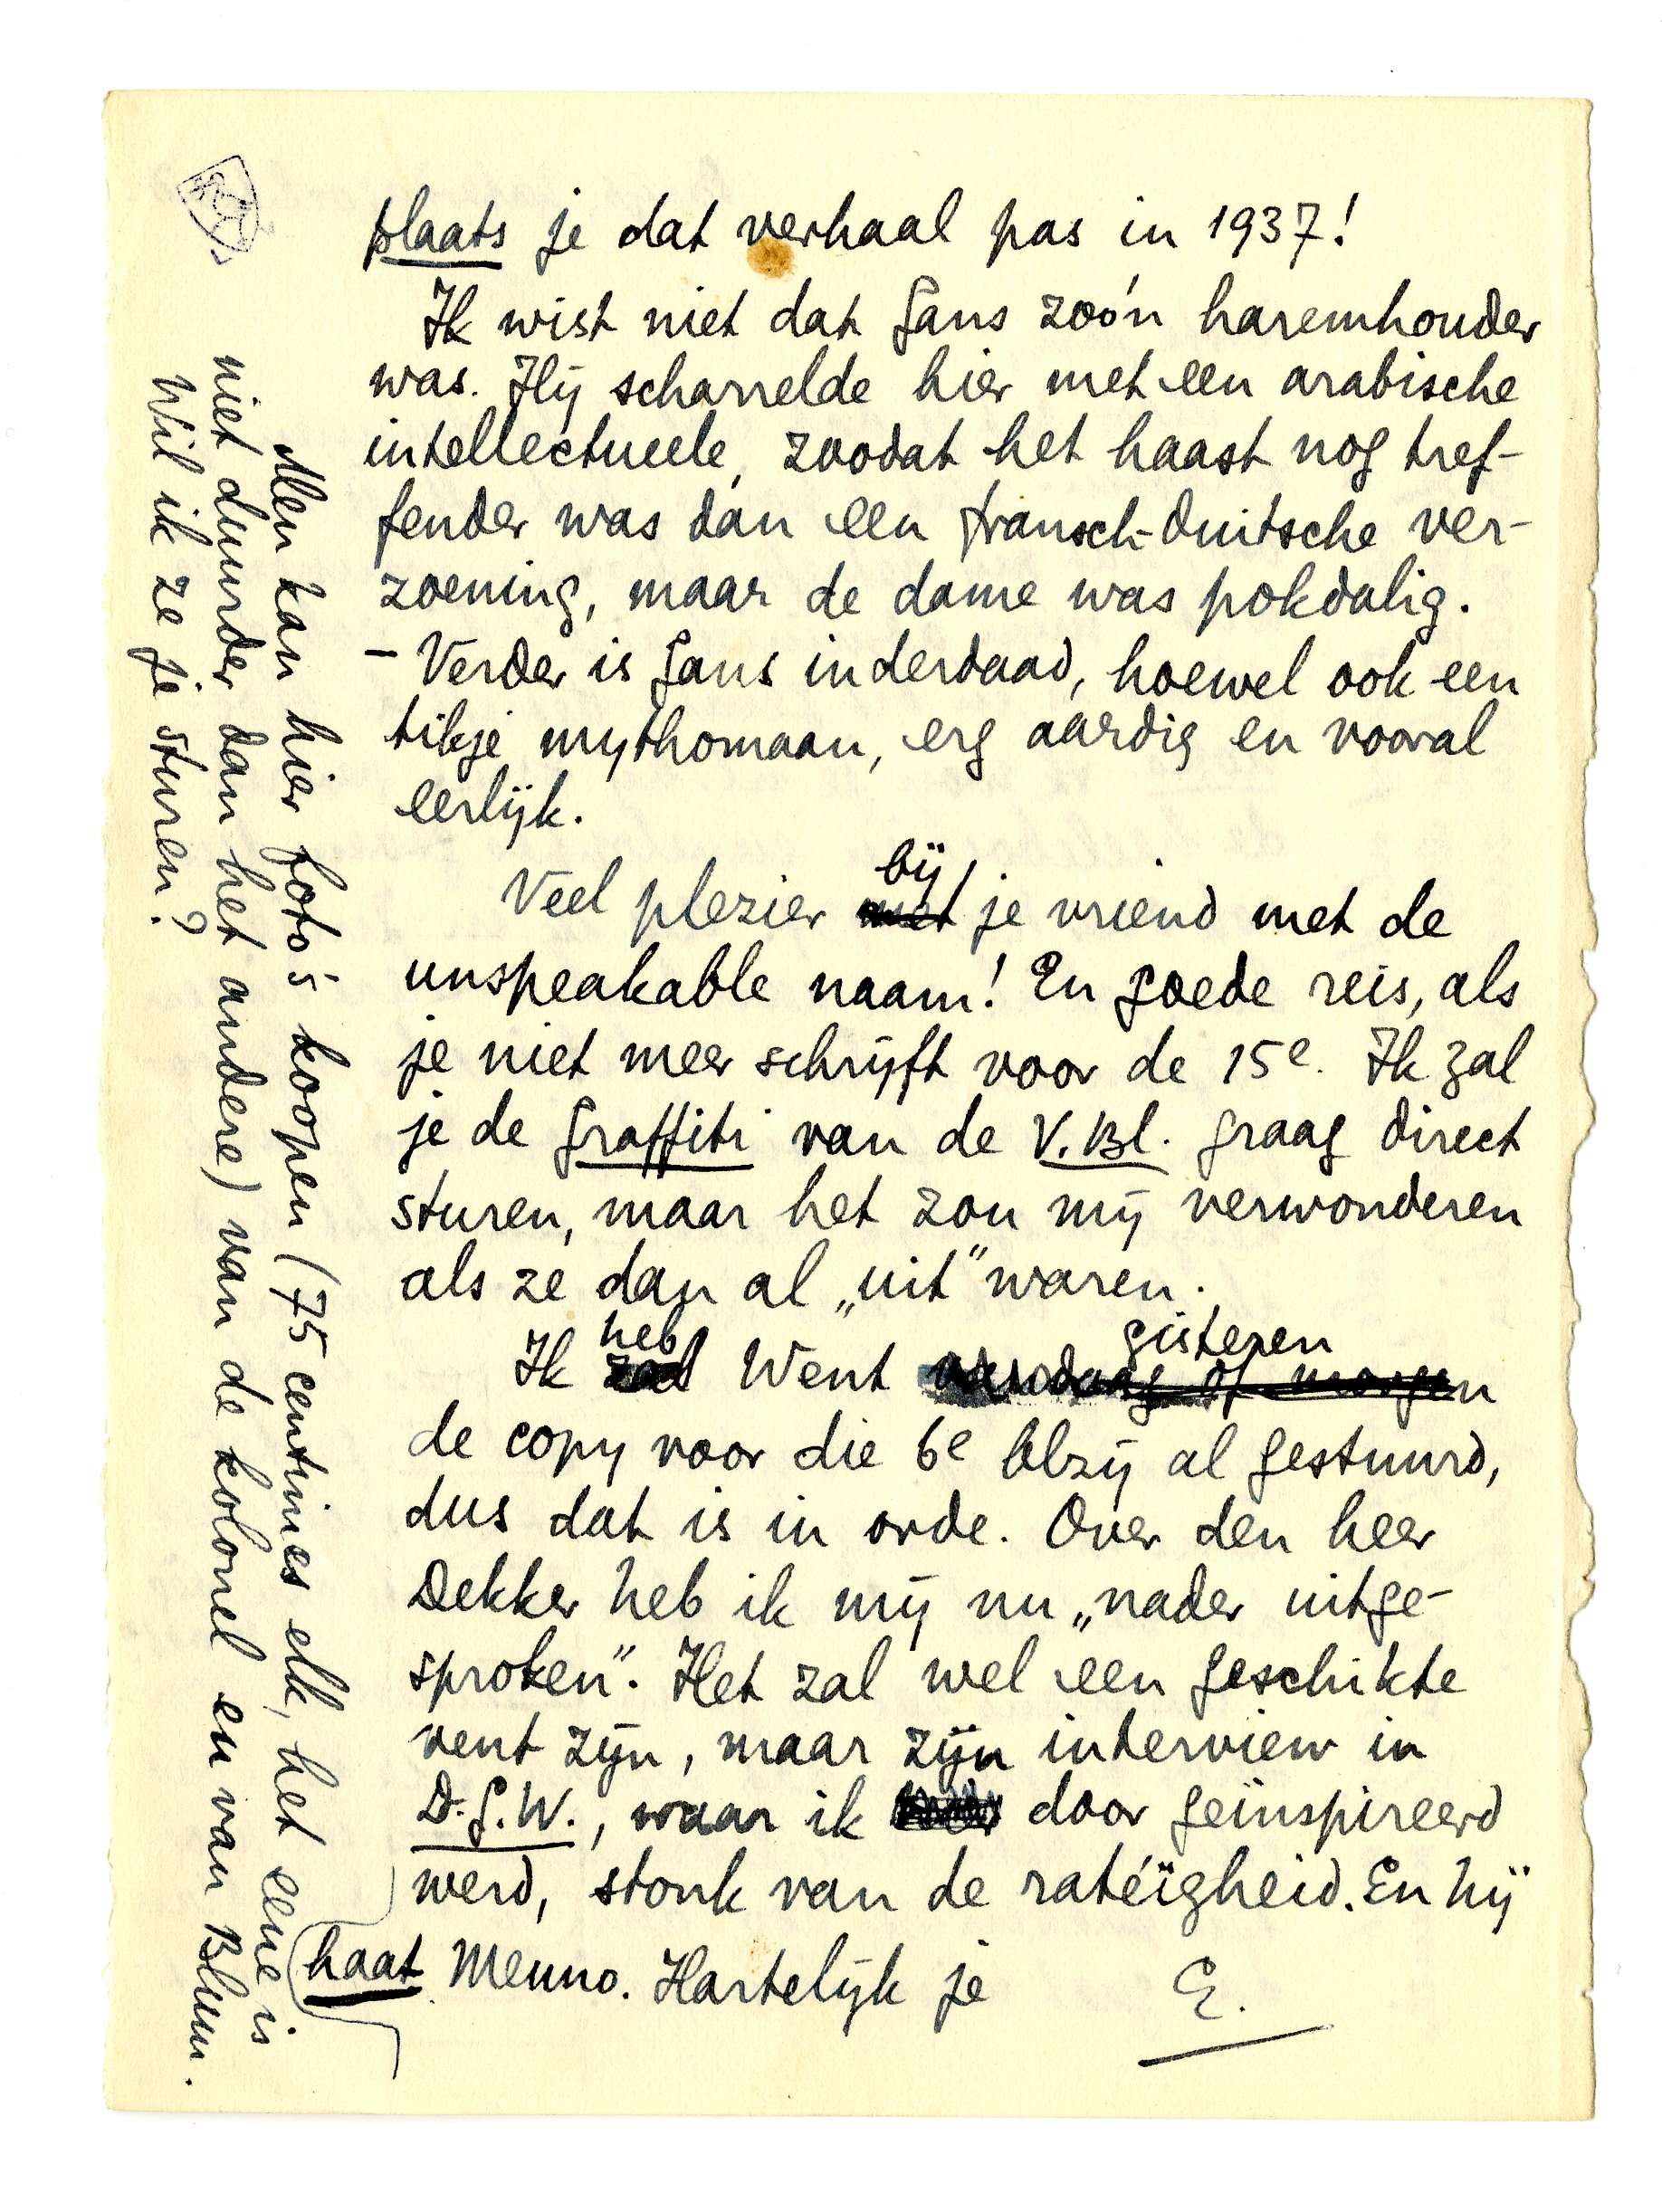 plaats je dat verhaal pas in 1937!
Ik wist niet dat Gans zoo'n haremhouder
was. Hij scharrelde hier met een arabische
intellectueele, zoodat het haast nog tref-
fender was dan een fransch-duitsche ver-
zoening, maar de dame was pokdalig.
– Verder is Gans inderdaad, hoewel ook een
tikje mythomaan, erg aardig en vooral
eerlijk.
Veel plezier met bij je vriend met de
unspeakable naam! En goede reis, als
je niet meer schrijft voor de 15e. Ik zal
je de Graffiti van de V.Bl. graag direct
sturen, maar het zou mij verwonderen
als ze dan al „uit” waren.
Ik zal heb Went vandaag of morgen gisteren
de copy voor die 6e blzij al gestuurd,
dus dat is in orde. Over den heer
Dekker heb ik mij nu „nader uitge-
sproken”. Het zal wel een geschikte
vent zijn, maar zijn interview in
D.G.W., waar ik door geïnspireerd
werd, stonk van de ratéïgheid. En hij
haat Menno. Hartelijk je
E.
Men kan hier foto's koopen (75 centimes elk, het eene is
niet duurder dan het andere) van de kolonel en van Blum.
Wil ik ze je sturen?